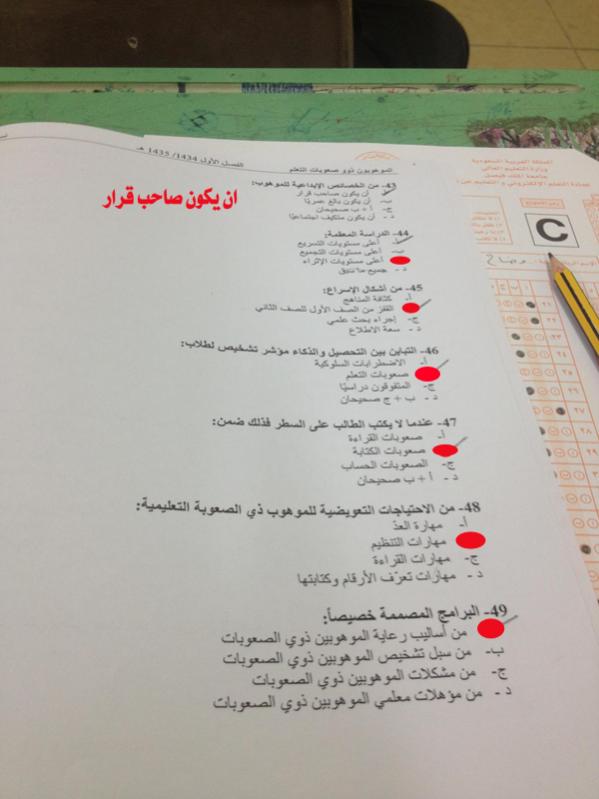 الموهوبون ذوو صعوبات التعلم
الفصل الأول 1434/ 1435 هـ
ان يكون صاحب قرار
43- من الخصائص الإبداعية للموهوب:
أ- أن يكون صاحب قرار
ب- أن يكون بالغ عمريًا
ج- أ + ب صحيحان
د- أن يكون متكيف اجتماعيًا
44- الدراسة المعظمة:
أ- أعلى مستويات التسريع
ب- أعلى مستويات التجميع
أعلى مستويات الإثراء
د- جميع ما سبق
45- من أشكال الإسراع:
أ- كثافة المناهج
القفز من الصف الأول للصف الثاني
ج- إجراء بحث علمي
د- سعة الاطلاع
46- التباين بين التحصيل والذكاء مؤشر تشخيص لطلاب:
أ- الاضطرابات السلوكية
صعوبات التعلم
ج- المتفوقون دراسيًا
د- ب + ج صحيحان
47- عندما لا يكتب الطالب على السطر فذلك ضمن:
أ- صعوبات القراءة
صعوبات الكتابة
ج- الصعوبات الحساب
د- أ + ب صحيحان
48- من الاحتياجات التعويضية للموهوب ذي الصعوبة التعليمية:
أ- مهارة العدّ
مهارات التنظيم
ج- مهارات القراءة
د- مهارات تعرّف الأرقام وكتابتها
49- البرامج المصممة خصيصاً:
من أساليب رعاية الموهوبين ذوي الصعوبات
ب- من سبل تشخيص الموهوبين ذوي الصعوبات
ج- من مشكلات الموهوبين ذوي الصعوبات
د- من مؤهلات معلمي الموهوبين ذوي الصعوبات
المملكة العربية السعودية
وزارة التعليم العالي
جامعة الملك فيصل
عمادة التعلم الإلكتروني و التعليم عن
C